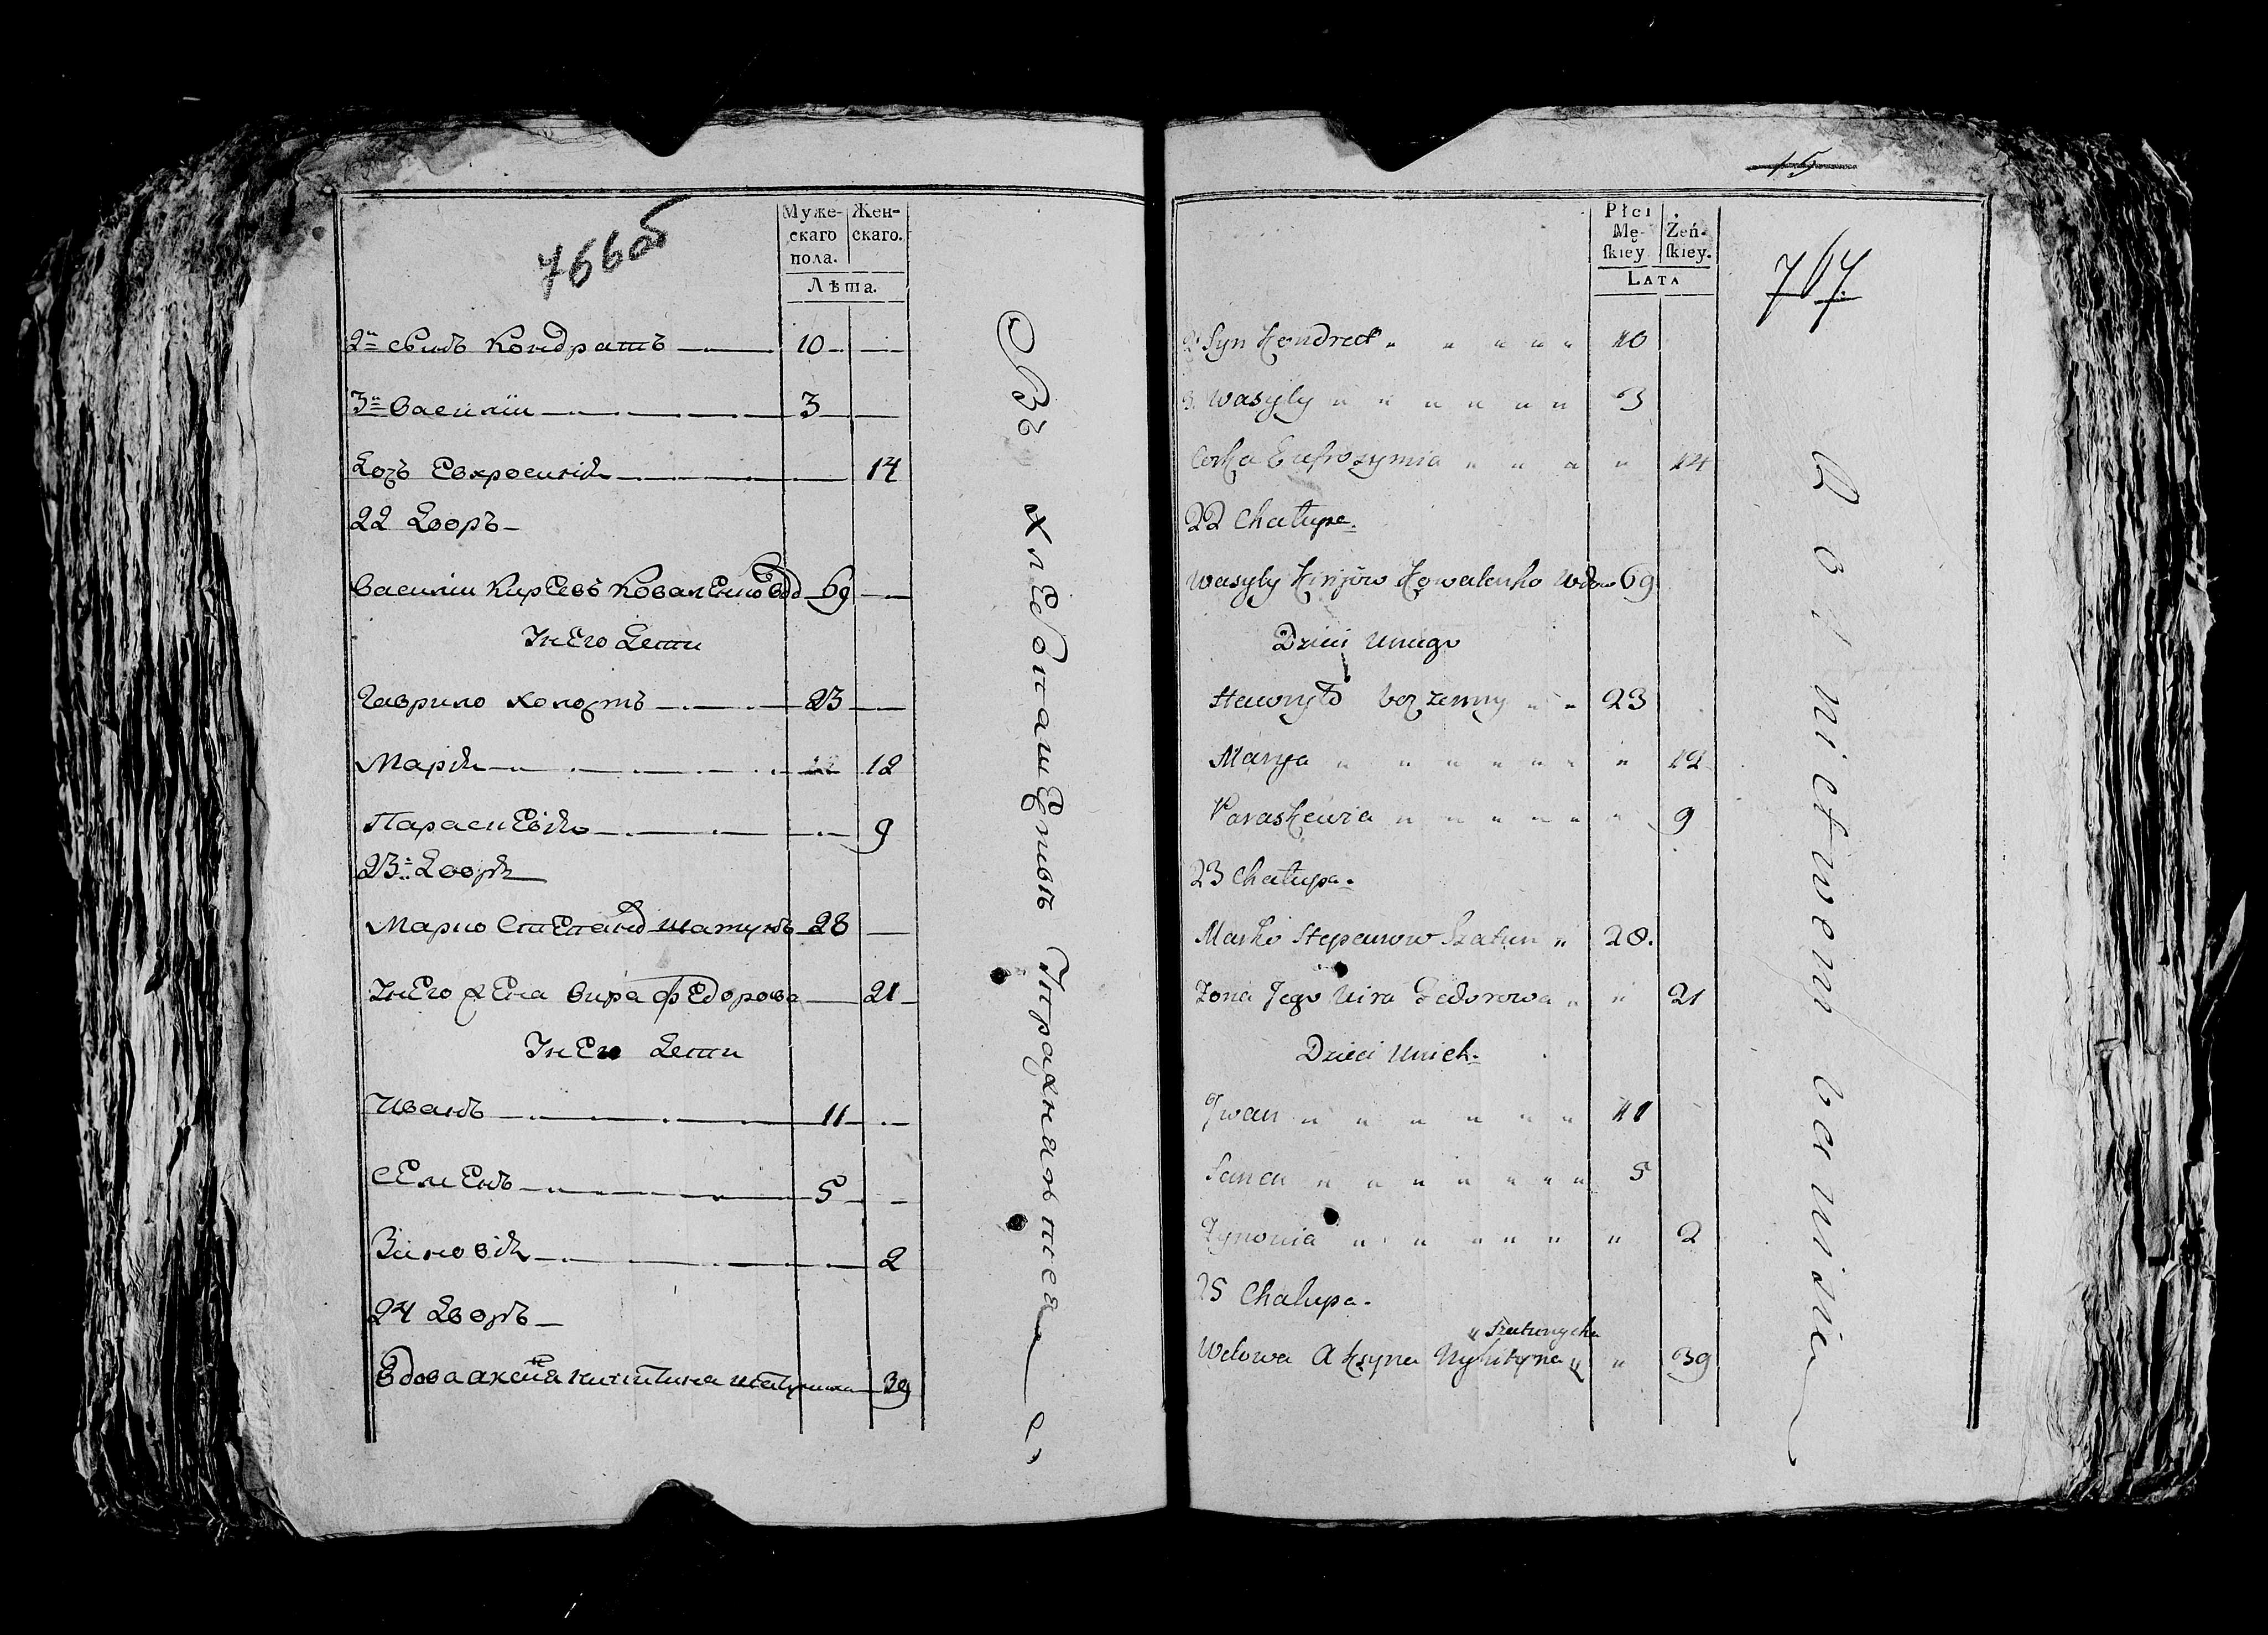 766об
Муже-
скаго
пола.
Жен-
скаго.
Лѣта.
2й сынъ Кондратъ 10
3й Василіи 3
Дочь Евхросинія 14
22 Дворъ
Василіи Кирѣевъ Коваленко вдо 69
У него дети
Гаврило холостъ 23
Марія 12
Параскевія 9
23: Дворъ
Марко Степановъ Шатунъ 28
У него жена Вира Федорова 21
У него дети
Иванъ 11
Семенъ 5
Зиновія 2
24 Дворъ
Вдова Аксинія Никитина Шатуниха 39
Въ хлебопашествѣ упражняется
15
767.
Płci
Mę-
ſkiey
Żeń-
ſkiey.
LATA
2 Syn Kondrat 10
3. Wasyly 3
Corka Eufrozynia 14
22 Chałupa.
Wasyly Kirijow Kowalenko Wdow 69
Dzieci u niego
Hawryło bezżenny 23
Marya 12
Paraskewia 9
23 Chałupa.
Marko Stepanow Szatun 28.
Żona Jego Wira Fedorowa 21
Dzieci u nich.
Jwan 11
Seman 5
Zynowia 2
25 Chalupa.
Szatunycha
Wdowa Aksyna Nykityna 39
Rolnictwem bawi się